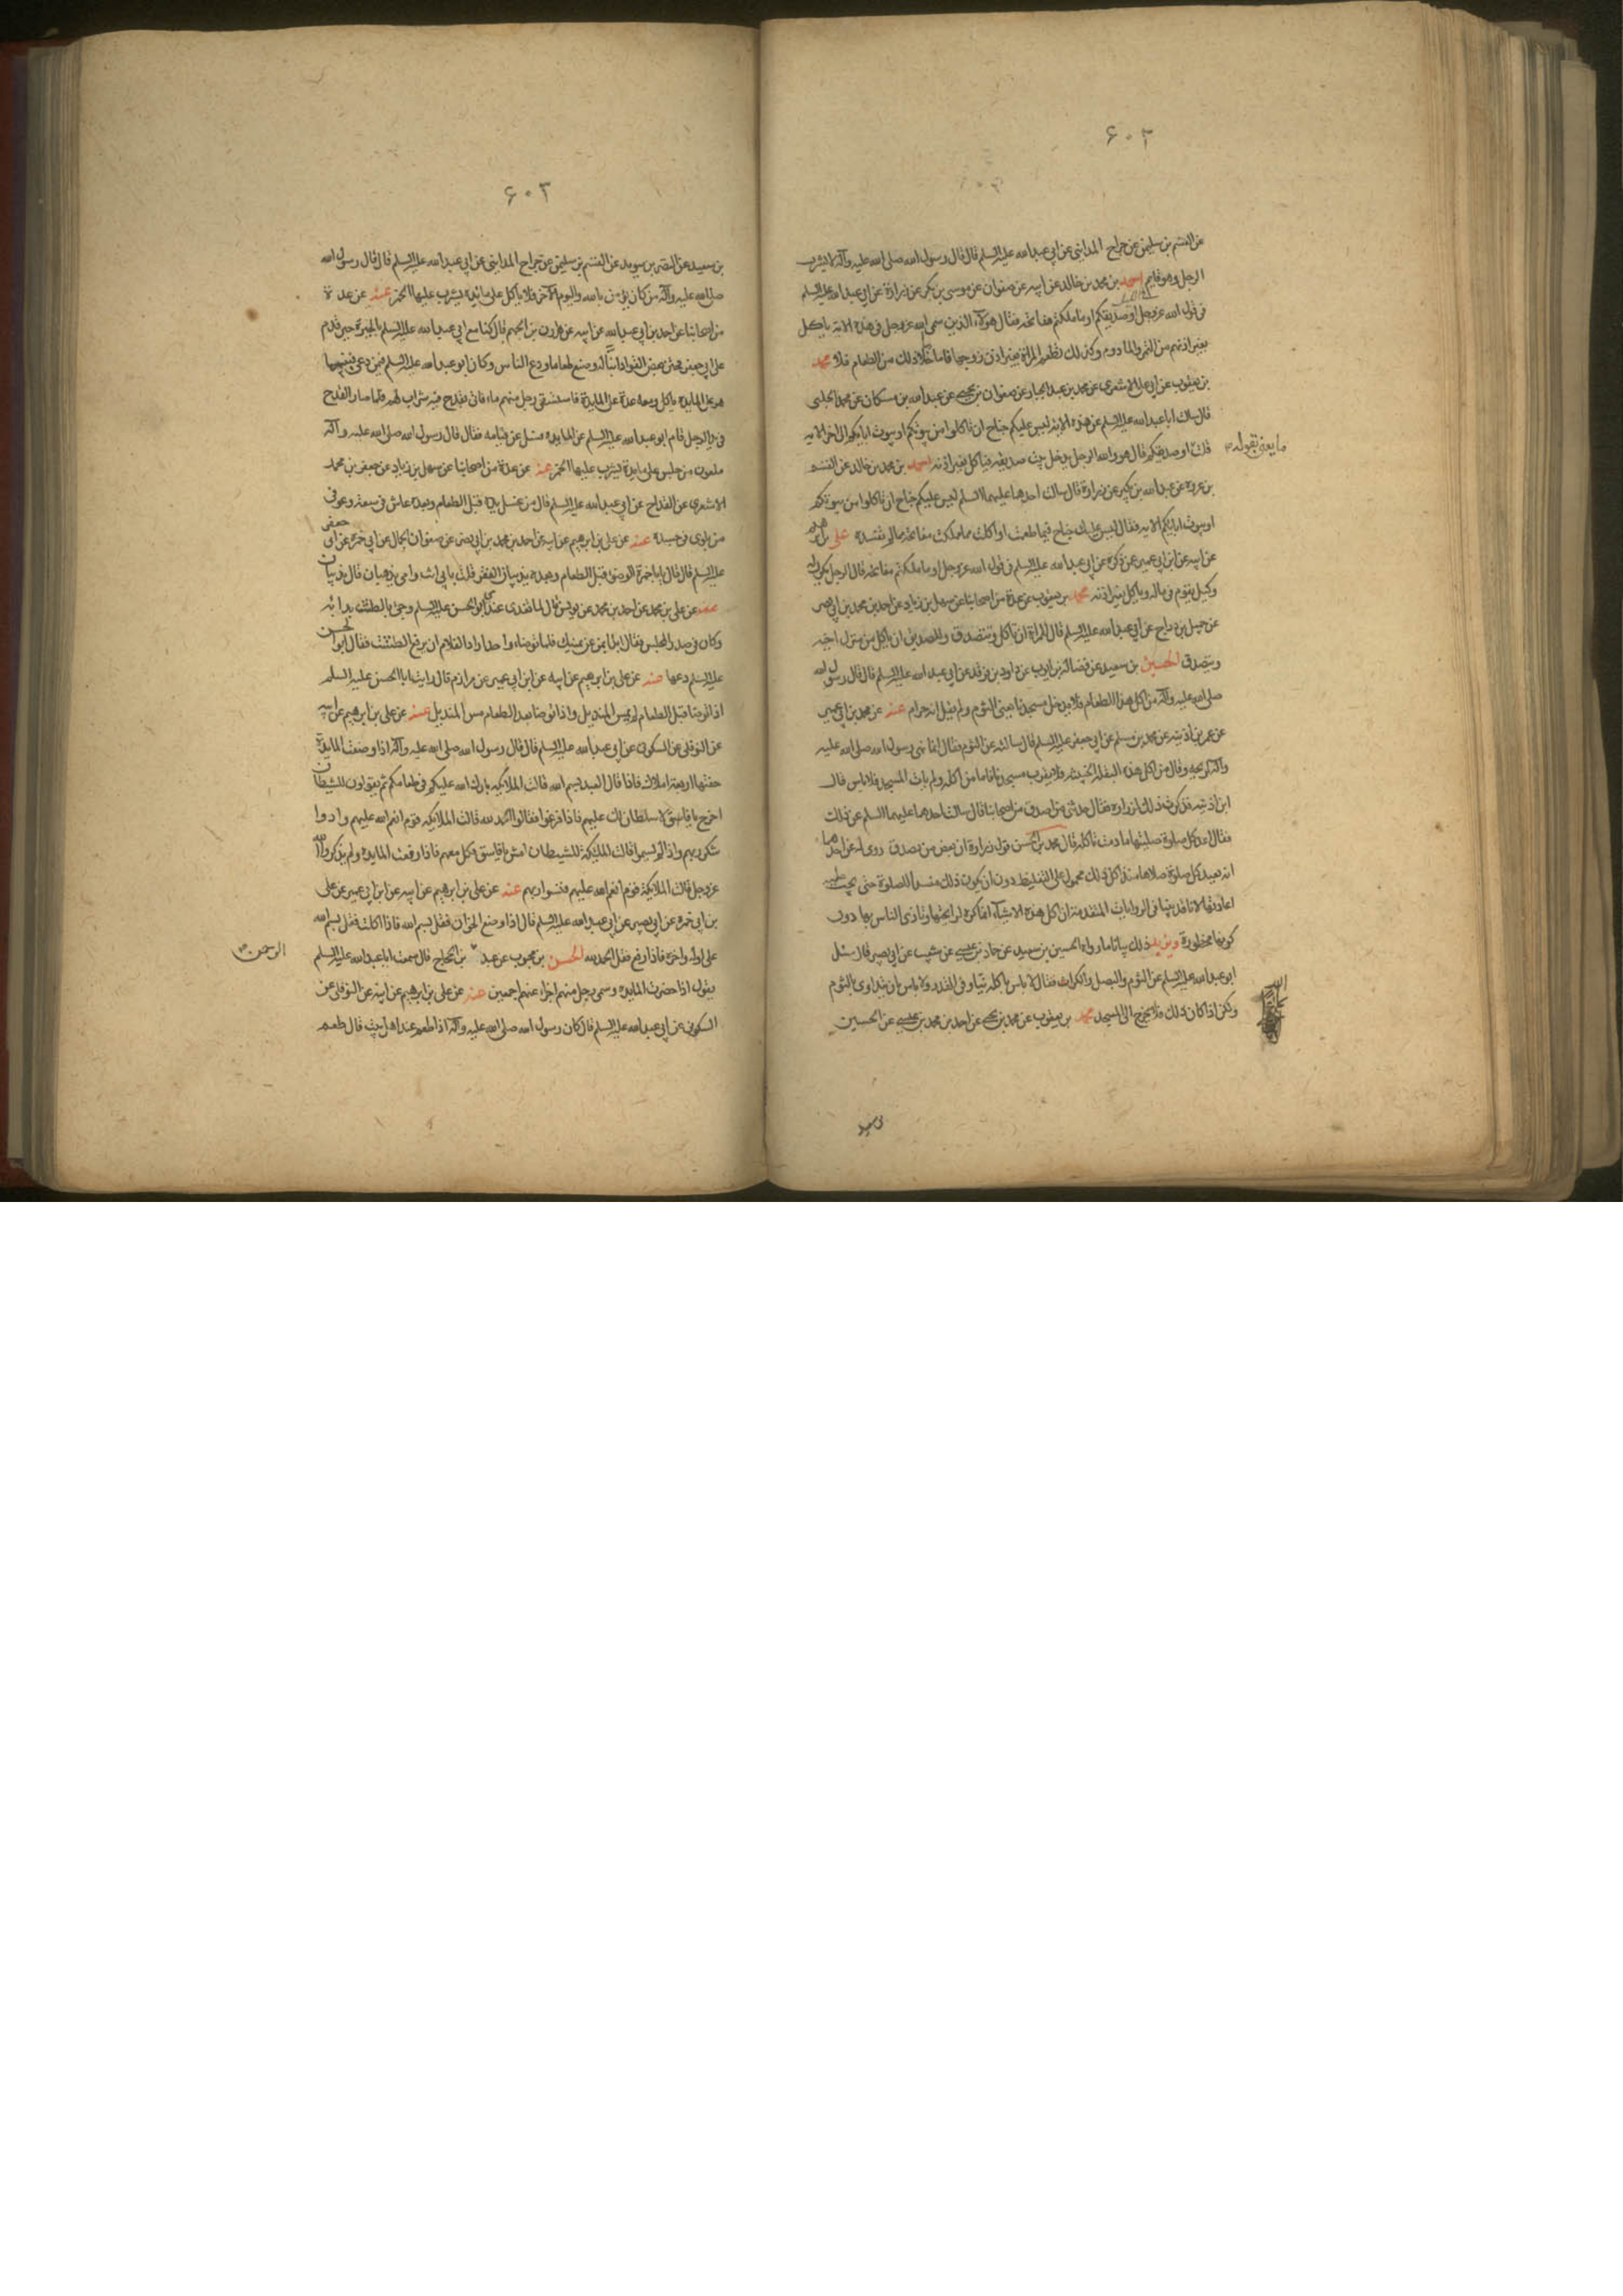 ۶۰۲
عن القسم بن سليمن عن جراح المدايني عن ابي عبدالله عليه السلم قال قال رسول الله صلى الله عليه وآله لا يشرب
الرجل وهو قايم احمد بن محمد بن خالد عن ابيه عن صفوان عن موسى بن بكر عن زرارة عن ابي عبدالله عليه السلم
في قول الله عزوجل او صديقكم او ما ملكتم مفاتحه فقال هولاء الذين سمى الله عزوجل في هذه الاية ياكل
بغير اذنهم من التمر والمادوم وكذلك تطعم المراة بغير اذن زوجها فاما خلا ذلك من الطعام فلا محمد
بن يعقوب عن ابي علي الاشعري عن محمد بن عبد الجبار عن صفوان بن يحيى عن عبدالله بن مسكان عن محمد الحلبي
قال سالت ابا عبدالله عليه السلم عن هذه الاية ليس عليكم جناح ان تاكلوا من بيوتكم او بيوت ابائكم الى اخر الاية
ما يعني بقوله
قلت او صديقكم قال هو والله الرجل يدخل بيت صديقه فياكل بغير اذنه احمد بن محمد بن خالد عن القسم
بن عروة عن عبدالله بن بكير عن زرارة قال سالت احدهما عليهما السلم ليس عليكم جناح ان تاكلوا من بيوتكم
او بيوت ابائكم الاية فقال ليس عليك جناح فيما طعمت او اكلت مما ملكت مفاتحه ما لم تفسده علي بن ابرهيم
عن ابيه عن ابن ابي عمير عن ذكره عن ابي عبدالله عليه السلم في قول الله عزوجل او ما ملكتم مفاتحه قال الرجل يكون له
وكيل يقوم في ماله وياكل بغير اذنه محمد بن يعقوب عن عدة من اصحابنا عن سهل بن زياد عن احمد بن محمد بن ابي نصر
عن جميل بن دراج عن ابي عبدالله عليه السلم قال للمراة ان تاكل وتتصدق وللصديق ان ياكل من منزل اخيه
ويتصدق الحسين بن سعيد عن فضالة بن ايوب عن داود بن فرقد عن ابي عبدالله عليه السلم قال قال رسول الله
صلى الله عليه وآله من اكل هذا الطعام فلا يدخل مسجدنا يعني الثوم ولم يقل انه حرام عنه عن محمد بن ابي عمير
عن عمر بن اذينه عن محمد بن مسلم عن ابي جعفر عليه السلم قال سالته عن الثوم فقال انما نهى رسول الله صلى الله عليه
وآله لريحه وقال من اكل هذه البقلة الخبيثة فلا يقرب مسجدنا فاما من اكله ولم يات المسجد فلا باس قال
ابن اذينه فذكرت ذلك لزراره فقال حدثني من اصدق من اصحابنا قال سالت احدهما عليهما السلم عن ذلك
فقال اعد كل صلوة صليتها ما دمت تاكله قال محمد بن الحسن قوله زرارة ان بعض من يصدق روى له عن احدهما
انه يعيد كل صلوة صلاها منذ اكل ذلك محمول على التغليظ دون ان يكون ذلك مفسدا للصلوة حتى يجب عليه
اعادتها لانا قد بينا في الروايات المتقدمة ان اكل هذه الاشياء انما كره لرائحتها وتاذى الناس بها دون
كونها محظورة ويزيد ذلك بيانا ما رواه الحسين بن سعيد عن حماد بن عيسى عن شعيب عن ابي بصير قال سئل
ابو عبدالله عليه السلم عن الثوم والبصل والكراث فقال لا باس باكله نيا وفي القدر ولا باس ان يتداوى بالثوم
ولكن اذا كان ذلك فلا يخرج الى المسجد محمد بن يعقوب عن محمد بن يحيى عن احمد بن محمد بن عيسى عن الحسين
۶۰۳
بن سعيد عن النضر بن سويد عن القسم بن سليمن عن جراح المدايني عن ابي عبدالله عليه السلم قال قال رسول الله
صلى الله عليه وآله من كان يؤمن بالله واليوم الآخر فلا ياكل على مائدة يشرب عليها الخمر عنه عن عدة
من اصحابنا عن احمد بن ابي عبدالله عن ابيه عن هرون بن الجهم قال كنا مع ابي عبدالله عليه السلم بالحيرة حين قدم
على ابي جعفر فختن بعض القواد ابنا له وصنع طعاما ودعى الناس وكان ابو عبدالله عليه السلم فيمن دعى فبينما
هو على المايدة ياكل ومعه عدة على المايدة فاستسقى رجل منهم ماء فاتى بقدح فيه شراب لهم فلما صار القدح
في يد الرجل قام ابو عبدالله عليه السلم عن المايدة فسئل عن قيامه فقال قال رسول الله صلى الله عليه وآله
ملعون من جلس على مايدة يشرب عليها الخمر عنه عن عدة من اصحابنا عن سهل بن زياد عن جعفر بن محمد
الاشعري عن القداح عن ابي عبدالله عليه السلم قال من غسل يده قبل الطعام وبعده عاش في سعة وعوفى
من بلوى في جسده عنه عن علي بن ابرهيم عن ابيه عن احمد بن محمد بن ابي نصر عن صفوان الجمال عن ابي حمزة عن ابي جعفر
عليه السلم قال قال يا با حمزة الوضوء قبل الطعام وبعده يذيبان الفقر قلت بابي انت وامي يذهبان قال يذيبان
عنه عن علي بن محمد عن احمد بن محمد عن يونس قال لما تغدى عندي ابو الحسن عليه السلم وجئ بالطشت بدا به
وكان في صدر المجلس فقال ابدا بمن عن يمينك فلما توضاء واحد اراد الغلام ان يرفع الطشت فقال ابو الحسن
عليه السلم دعها عنه عن علي بن ابرهيم عن ابيه عن ابن ابي عمير عن مرازم قال رايت ابا الحسن عليه السلم
اذا توضا قبل الطعام لم يمس المنديل واذا توضا بعد الطعام مس المنديل عنه عن علي بن ابرهيم عن ابيه
عن النوفلي عن السكوني عن ابي عبدالله عليه السلم قال قال رسول الله صلى الله عليه وآله اذا وضعت المايدة
حفتها اربعة املاك فاذا قال العبد بسم الله قالت الملائكة بارك الله عليكم في طعامكم ثم يقولون للشيطان
اخرج يا فاسق لا سلطان لك عليهم فاذا فرغوا فقالوا الحمد لله قالت الملائكة قوم انعم الله عليهم وادوا
شكر ربهم واذا لم يسموا قالت الملئكة للشيطان ادن يا فاسق فكل معهم فاذا رفعت المايدة ولم يذكروا الله
عزوجل قالت الملائكة قوم انعم الله عليهم فنسوا ربهم عنه عن علي بن ابرهيم عن ابيه عن ابن ابي عمير عن علي
بن ابي حمزة عن ابي بصير عن ابي عبدالله عليه السلم قال اذا وضع الخوان فقل بسم الله فاذا اكلت فقل بسم الله
على اوله واخره فاذا رفع فقل الحمد لله الحسن بن محبوب عن عبد بن الحجاج قال سمعت ابا عبدالله عليه السلم
الرحمن
يقول اذا حضرت المايدة وسمى رجل منهم اجزاء عنهم اجمعين عنه عن علي بن ابرهيم عن ابيه عن النوفلي عن
السكوني عن ابي عبدالله عليه السلم قال كان رسول الله صلى الله عليه وآله اذا طعم عند اهل بيت قال طعم